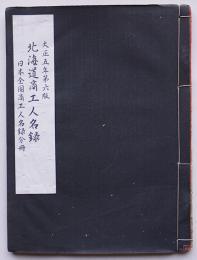 大正五年第六版
北海道商工人名録
日本全国商工人名録分冊